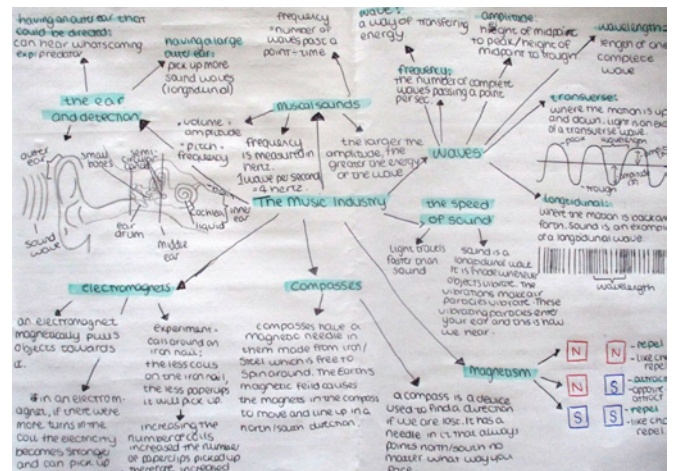 having an outer ear that
could be directed:
can hear whats coming
exp: predator
having a large
outer ear:
pick up more
sound waves
(longitudinal)
the ear
and detection
outer
ear
small
bones
semi-
circular
canals
sound
wave
ear
drum
middle
ear
cochlea
liquid
inner
ear
frequency
= number of
waves past a
point ÷ time
musical sounds
• volume =
amplitude
• pitch =
frequency
frequency
is measured in
hertz.
1 wave per second
the larger the
amplitude, the
greater the energy
of the wave
The Music Industry
waves:
a way of transferring
energy
frequency:
the number of complete
waves passing a point
per sec.
amplitude:
height of midpoint
to peak/height of
midpoint to trough
wavelength:
length of one
complete
wave
waves
transverse:
where the motion is up
and down. Light is an ex
of a transverse wave.
peak
wavelength
trough
longitudinal:
where the motion is back and
forth. Sound is an example
of a longitudinal wave
wavelength
the speed
of sound
light travels
faster than
sound
sound is a
longitudinal wave
It is made whenever
objects vibrate. The
vibrations make air
particles vibrate. These
vibrating particles enter
your ear and this is how
we hear.
electromagnets
an electromagnet
magnetically pulls
objects towards
it.
if in an electrom-
agnet, if there were
more turns in the
coil the electricity
becomes stronger
and can pick up
experiment -
coils around an
iron nail:
the less coils
on the iron nail,
the less paperclips
it will pick up.
increasing the
number of coils
increased the number
of paperclips picked up
therefore, increased
compasses
compasses have a
magnetic needle in
them made from iron/
steel which is free to
spin around. The Earth's
magnetic feild causes
the magnets in the compass
to move and line up in a
north/south direction.
a compass is a device
used to find a direction
if we are lose. It has a
needle in it that always
points north/south no
matter what way you
face.
magnetism
N N - repel
- like
repel
N S - attract
- opposite
attract
S S - repel
- like
repel